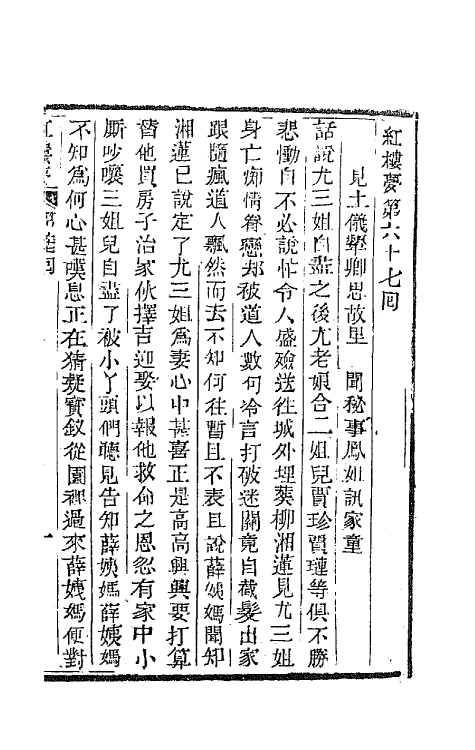 紅樓夢第六十七回
見土儀顰卿思故里　聞秘事鳳姐訊家童
話說尤三姐自盡之後尤老娘合二姐兒賈珍賈璉等俱不勝
悲慟自不必說忙令人盛殮送徃城外埋葬柳湘蓮見尤三姐
身亡痴情眷戀却被道人數句冷言打破迷關竟自截髮出家
跟隨瘋道人飄然而去不知何徃暫且不表且說薛姨媽聞知
湘蓮已說定了尤三姐為妻心中甚喜正是高高興興要打算
替他買房子治家伙擇吉迎娶以報他救命之恩忽有家中小
厮吵嚷三姐兒自盡了被小丫頭們聽見告知薛姨媽薛姨媽
不知為何心甚嘆息正在猜疑寳釵從園裡過來薛姨媽便對
紅樓夢　第回
一